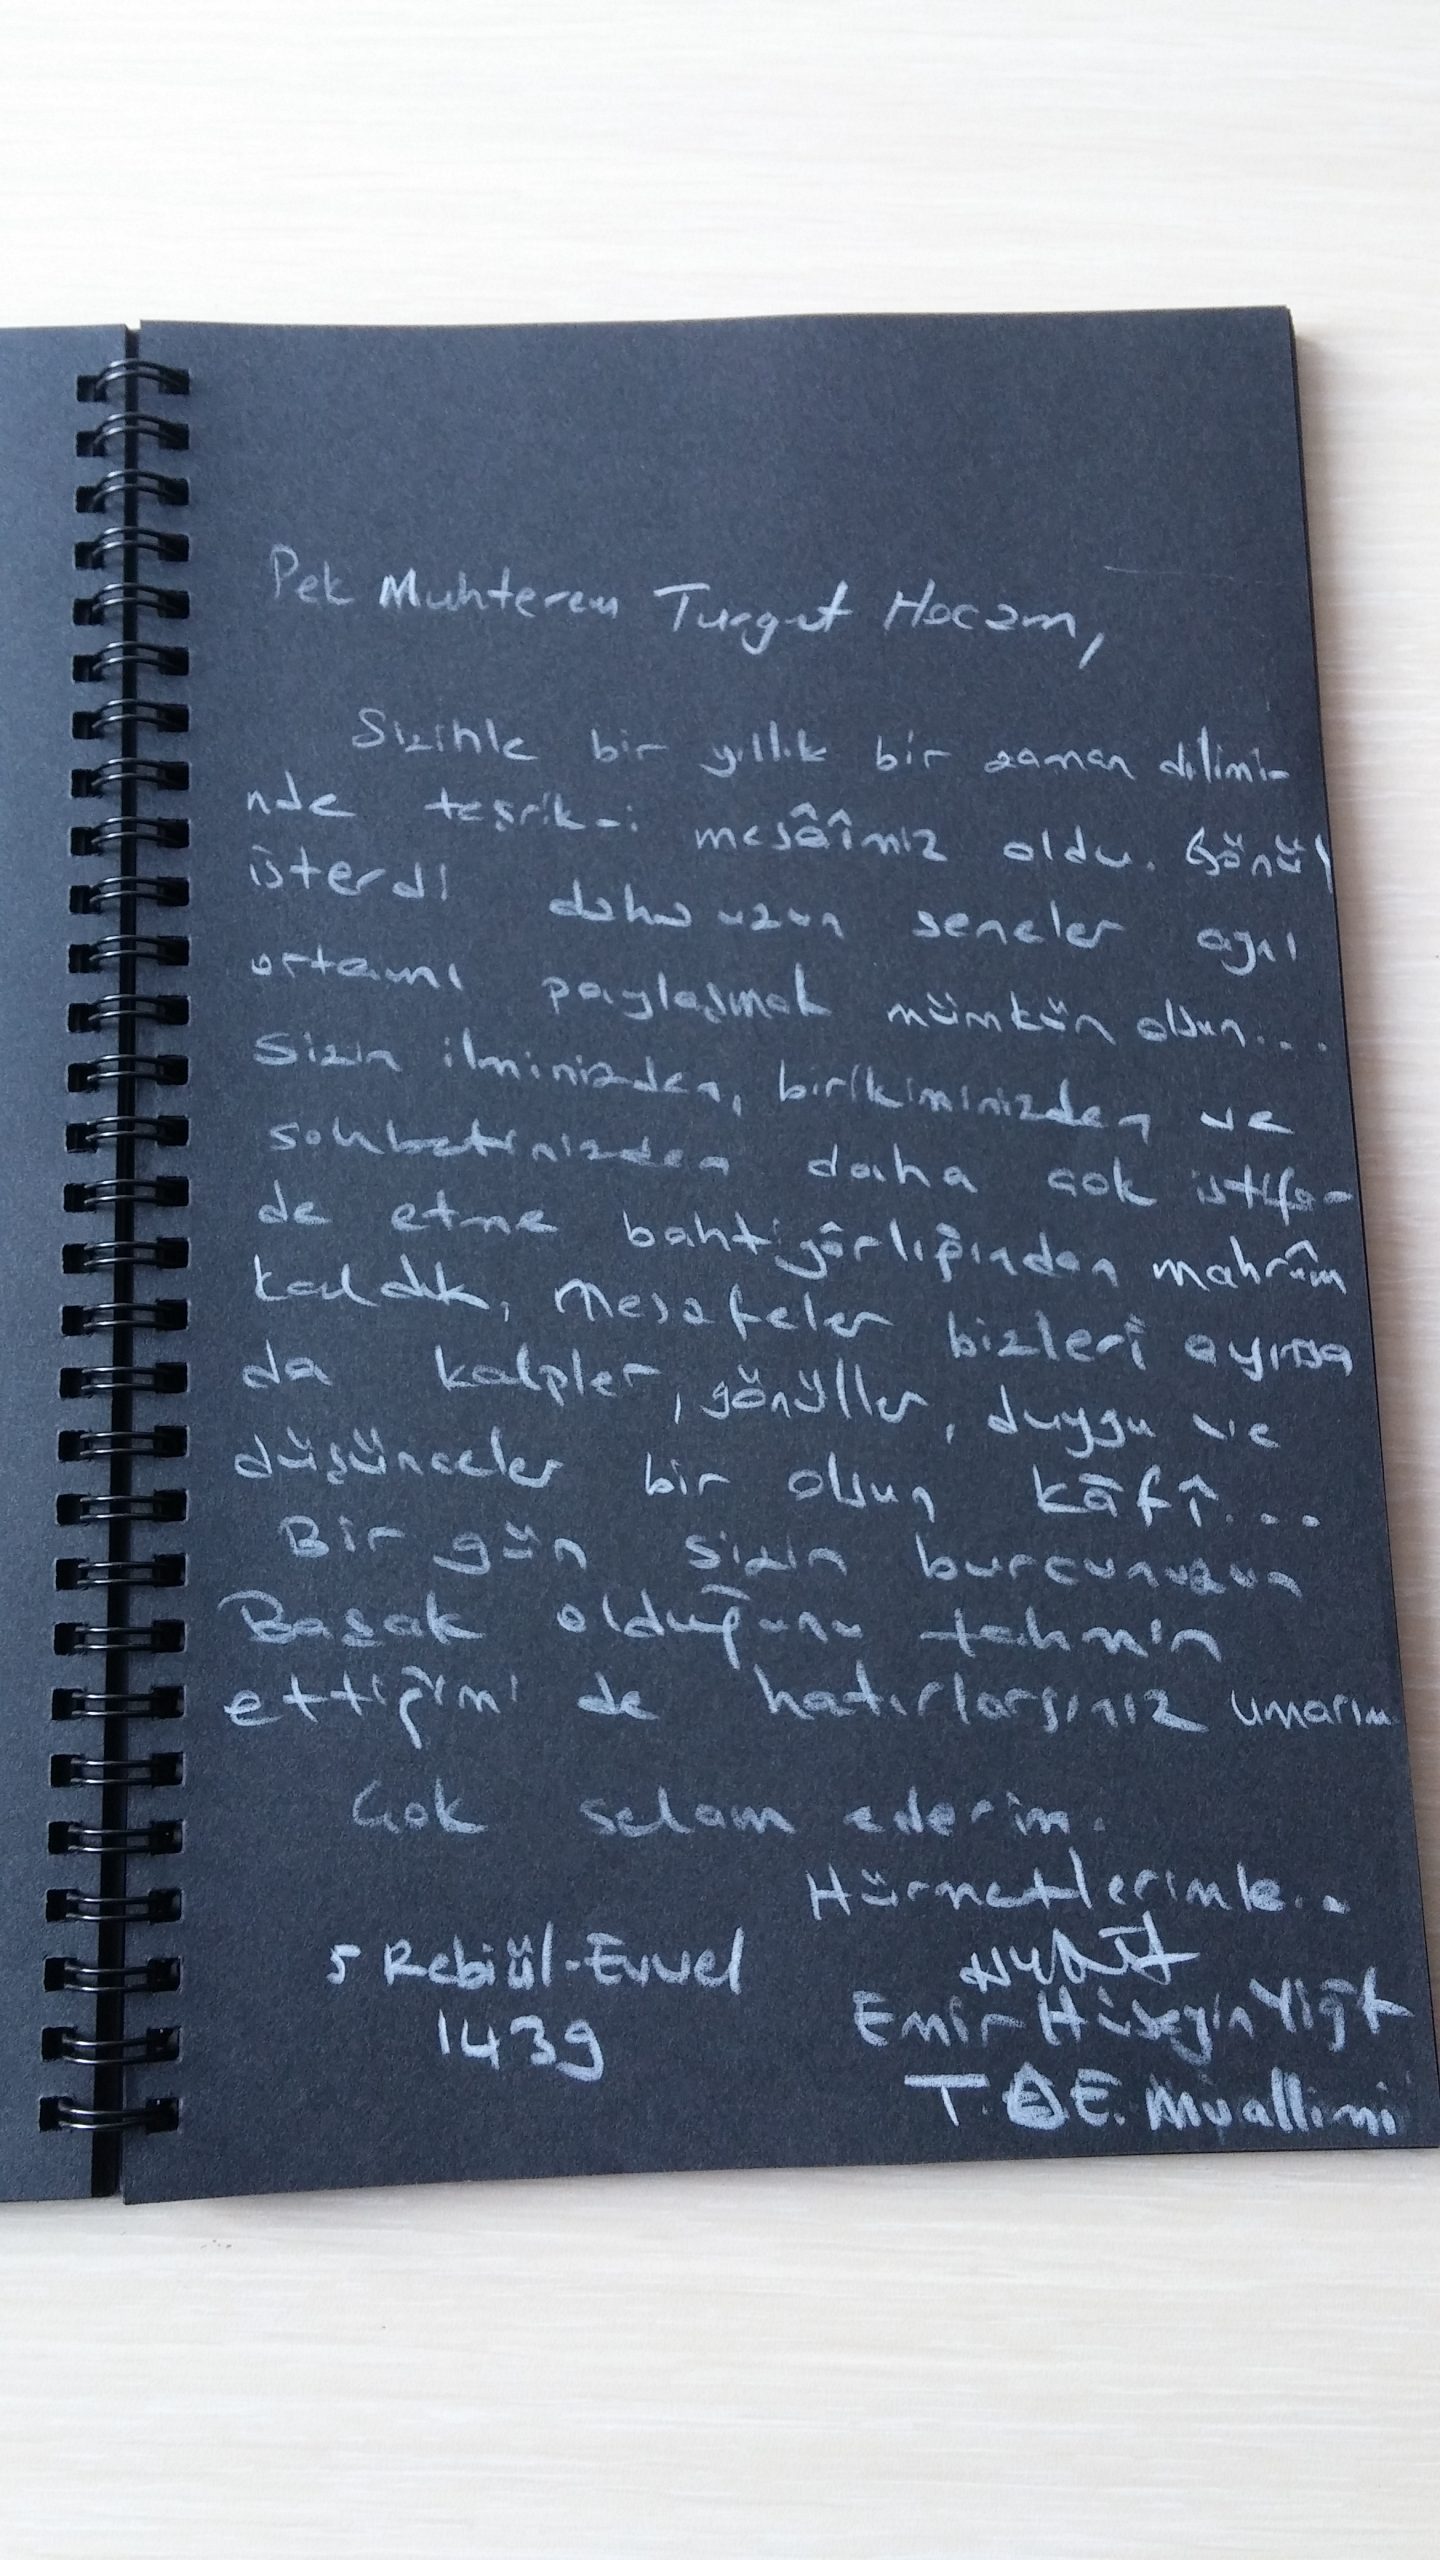 Pek Muhterem Turgut Hocam,
Sizinle bir yıllık bir zaman dilimi-
nde teşrik-i mesâîmiz oldu. Gönül
isterdi daha uzun seneler aynı
ortamı paylaşmak mümkün olsun...
Sizin ilminizden, birikiminizden ve
sohbetinizden daha çok istifa-
de etme bahtiyârlığından mahrûm
kaldık, Mesafeler bizleri ayırsa
da kalpler, gönüller, duygu ve
düşünceler bir olsun kâfî...
Bir gün sizin burcunuzun
Başak olduğunu tahmin
ettiğimi de hatırlarsınız umarım
Çok selam ederim.
Hürmetlerimle...
5 Rebiül-Evvel
1439
Emir Hüseyin Yiğit
T.D.E. Muallimi